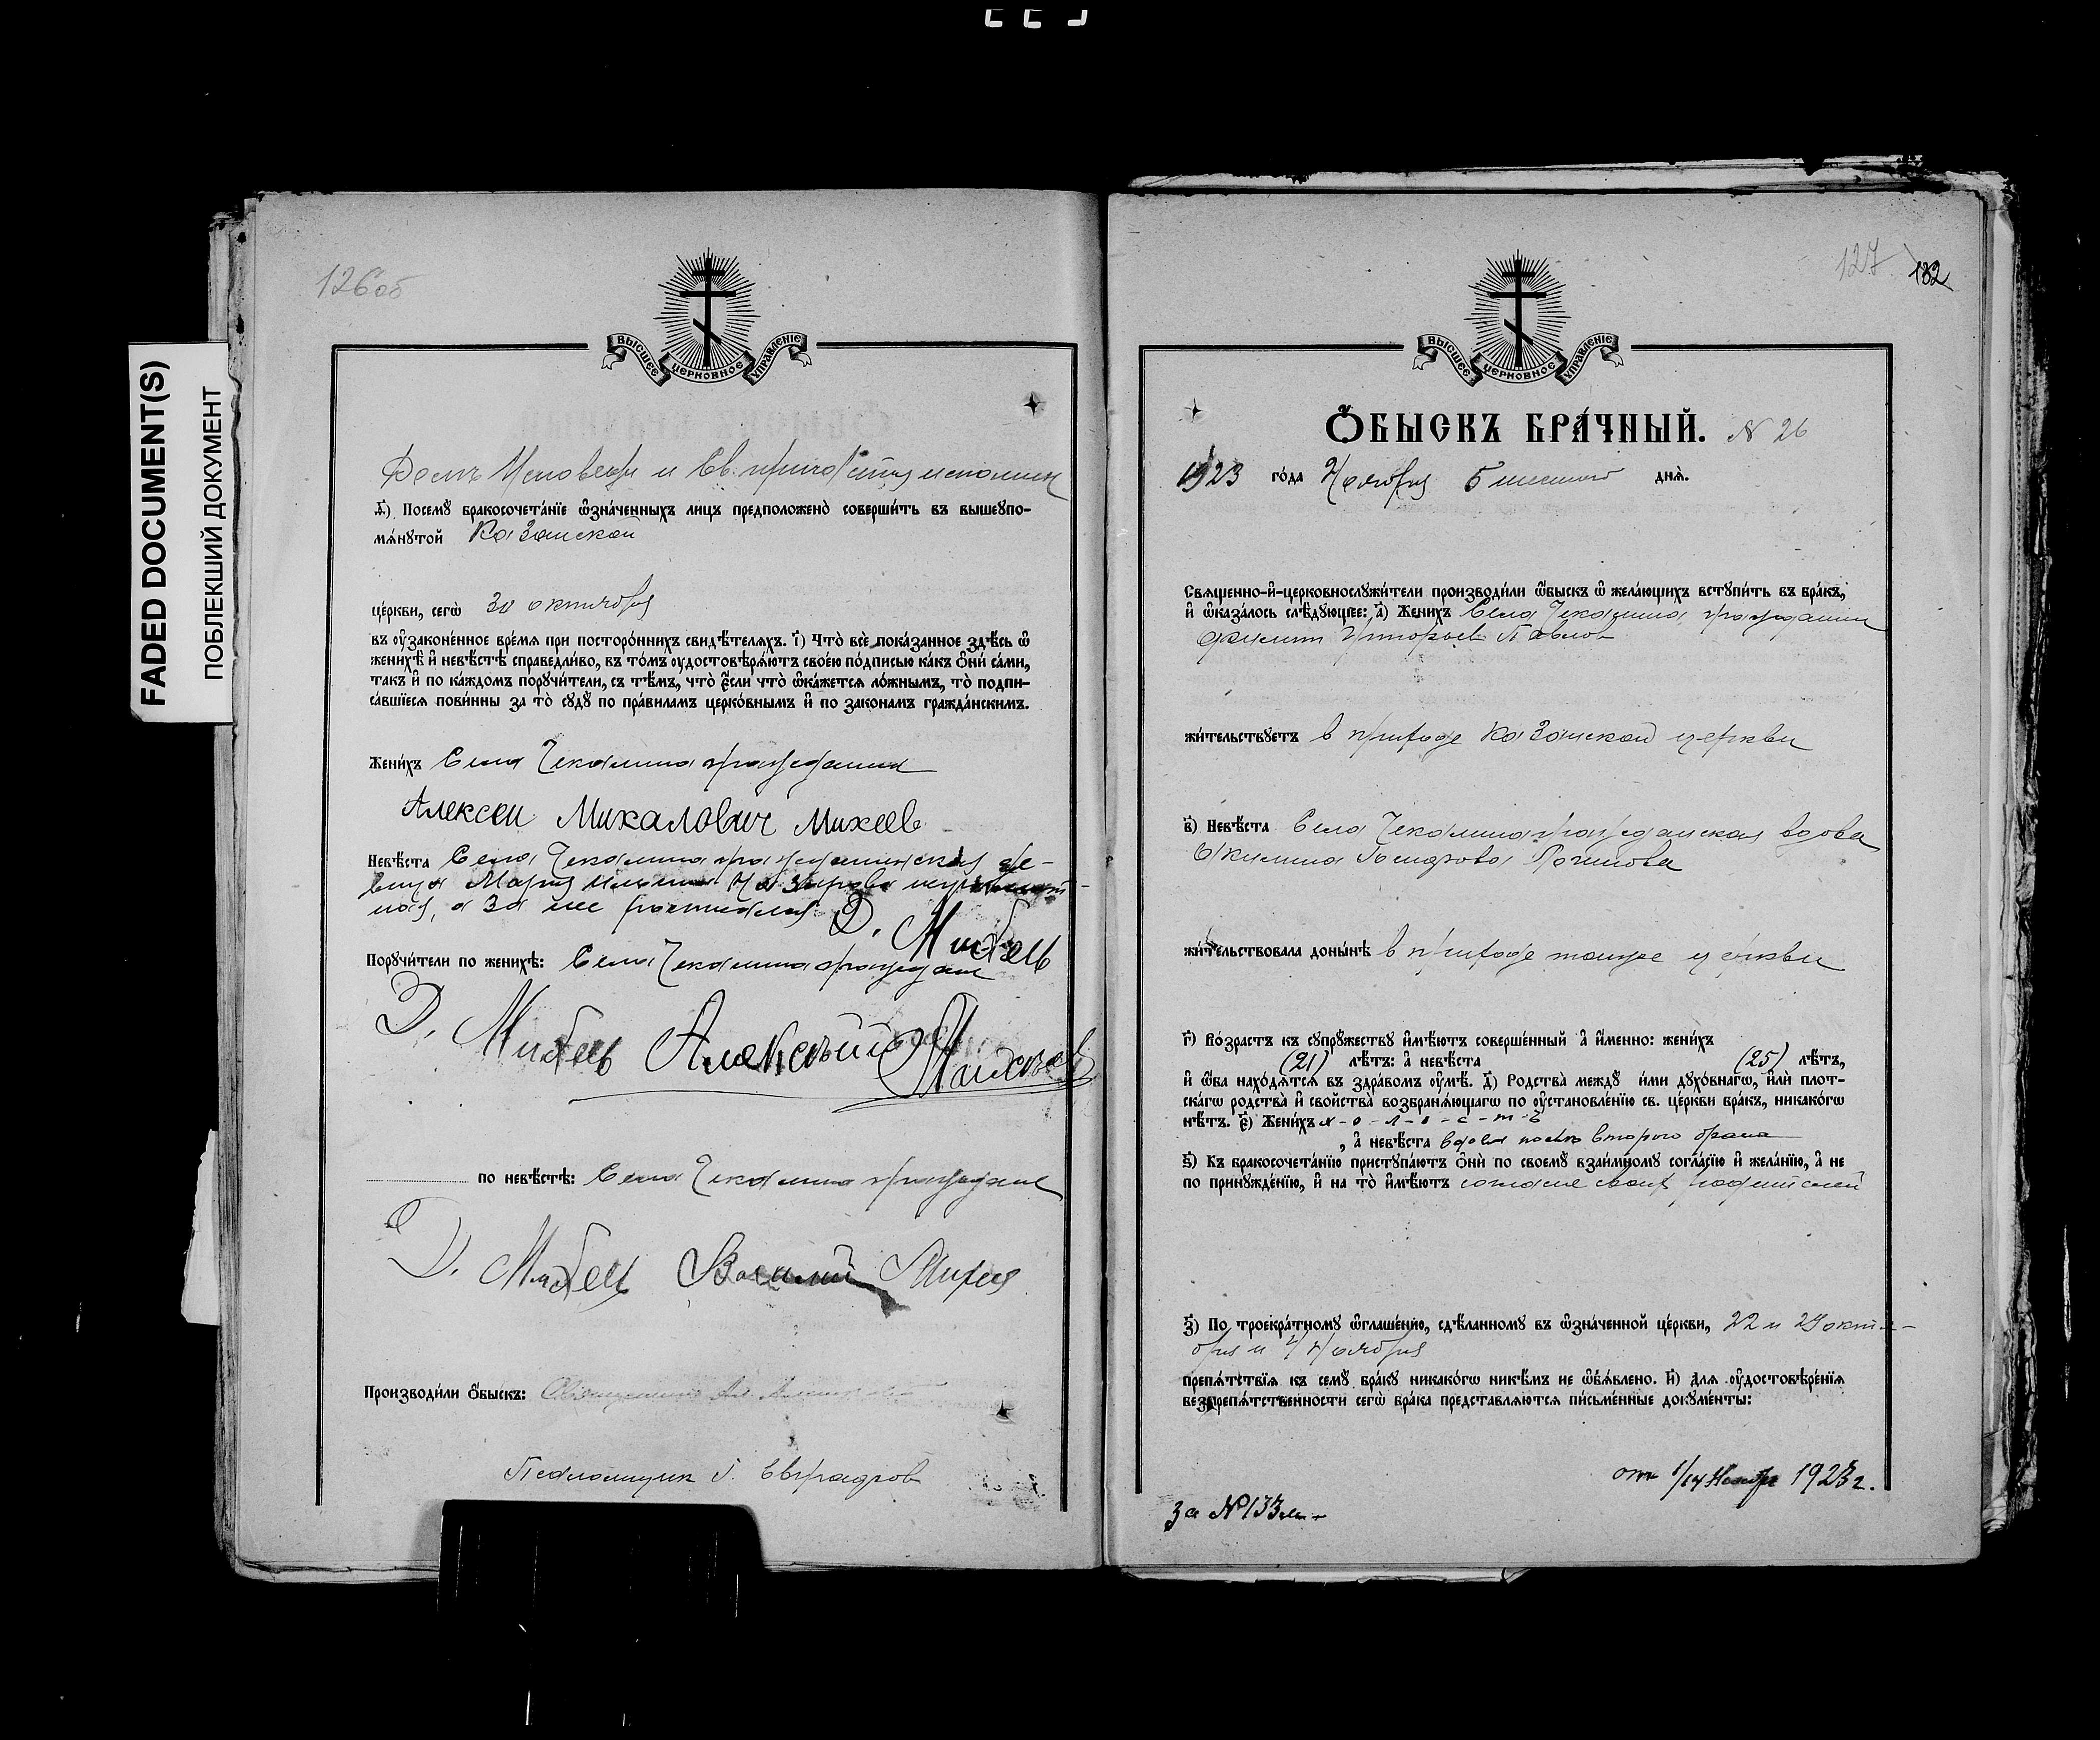 FADED DOCUMENT(S)
ПОБЛЕКШИЙ ДОКУМЕНТ
126об
ВЫСШЕЕ ЦЕРКОВНОЕ УПРАВЛЕНІЕ
Долгъ Исповеди и Св. причастия исполнен
Ѳ҃) Посемꙋ̀ бракосочета́нїе ѡ҆зна́ченныхъ лицъ предположено̀ соверши́ть въ вышеꙋпо-
мѧ́нꙋтой Казанской
це́ркви, сегѡ̀ 30 октября
въ ᲂу҆зако́ненное вре́мѧ при посторо́ннихъ свидѣ́телѧхъ. І҃) Что̀ всѐ пока́занное здѣ́сь ѡ҆
женихѣ̀ и҆ невѣ́стѣ справедли́во, въ то́мъ ᲂу҆достовѣрѧ́ютъ свое́ю по́дписью ка́къ ѻ҆нѝ са́ми,
та́къ и҆ по ка́ждомъ порꙋчи́тели, съ тѣ́мъ, что̀ є҆́сли что̀ ѡ҆ка́жетсѧ ло́жнымъ, то̀ подпи-
са́вшїесѧ пови́нны за то̀ сꙋдꙋ̀ по пра́виламъ церко́внымъ и҆ по зако́намъ гражда́нскимъ.
Жени́хъ Села Чекалина гражданин
Алексеи Михалович Михеев
Невѣ́ста Села Чекалина гражданская де-
вица Мария
ная, а за нее
Д. Михеев
Порꙋчи́тели по женихѣ̀: Села Чекалина граждане
Д. Михеев Алексѣй
по невѣ́стѣ: Села Чекалина граждане
Д. Михеев Василий
Производи́ли ѻ҆́быскъ: Священник
Псаломщик Евграфов
127 132
ВЫСШЕЕ ЦЕРКОВНОЕ УПРАВЛЕНІЕ
Ѻ҆́БЫСКЪ БРА́ЧНЫЙ. N 26
1923 го́да Ноября 5 днѧ̀.
Свѧще́нно-и҆-церковнослꙋжи́тели производи́ли ѻ҆́быскъ ѡ҆ жела́ющихъ встꙋпи́ть въ бра́къ,
и҆ ѡ҆каза́лось слѣ́дꙋющее: а҃) Жени́хъ Села Чекалина гражданин
Филипп Григорьев Павлов
жи́тельствꙋетъ в приходе Казанской церкви
в҃) Невѣ́ста Села Чекалина гражданская вдова
Акилина
жи́тельствовала доны́нѣ в приходе тойже церкви
г҃) Во́зрастъ къ сꙋпрꙋ́жествꙋ и҆мѣ́ютъ соверше́нный а҆ и҆́менно: жени́хъ
(21) лѣ́тъ: а҆ невѣ́ста (25) лѣ́тъ,
и҆ ѻ҆́ба нахо́дѧтсѧ въ здра́вомъ ᲂу҆мѣ̀. д҃) Родства̀ междꙋ̀ и́ми дꙋхо́внагѡ, и҆лѝ плот-
ска́гѡ родства̀ и҆ сво́йства возбранѧ́ющагѡ по ᲂу҆становле́нїю св. це́ркви бра́къ, никако́гѡ
нѣ́тъ. є҃) Жени́хъ х-о-л-о-с-т-ъ
, а҆ невѣ́ста вдова после второго брака
ѕ҃) Къ бракосочета́нїю пристꙋпа́ютъ ѻ҆нѝ по своемꙋ̀ взаи́мномꙋ согла́сїю и҆ жела́нїю, а҆ не
по принꙋжде́нїю, и҆ на то̀ и҆мѣ́ютъ согласие своих родителей
з҃) По троекра́тномꙋ ѡ҆глаше́нїю, сдѣ́ланномꙋ въ ѡ҆зна́ченной це́ркви, 22 и 29 октя-
бря и Ноября
препѧ́тствїѧ къ семꙋ̀ бра́кꙋ никако́гѡ никѣ́мъ не ѡ҆б̾ѧ́влено. и҃) Длѧ ᲂу҆достовѣ́ренїѧ
безпрепѧ́тственности сегѡ̀ бра́ка представлѧ́ютсѧ пи́сьменные докꙋме́нты:
от 1/14 Ноября 1923 г.
за № 133